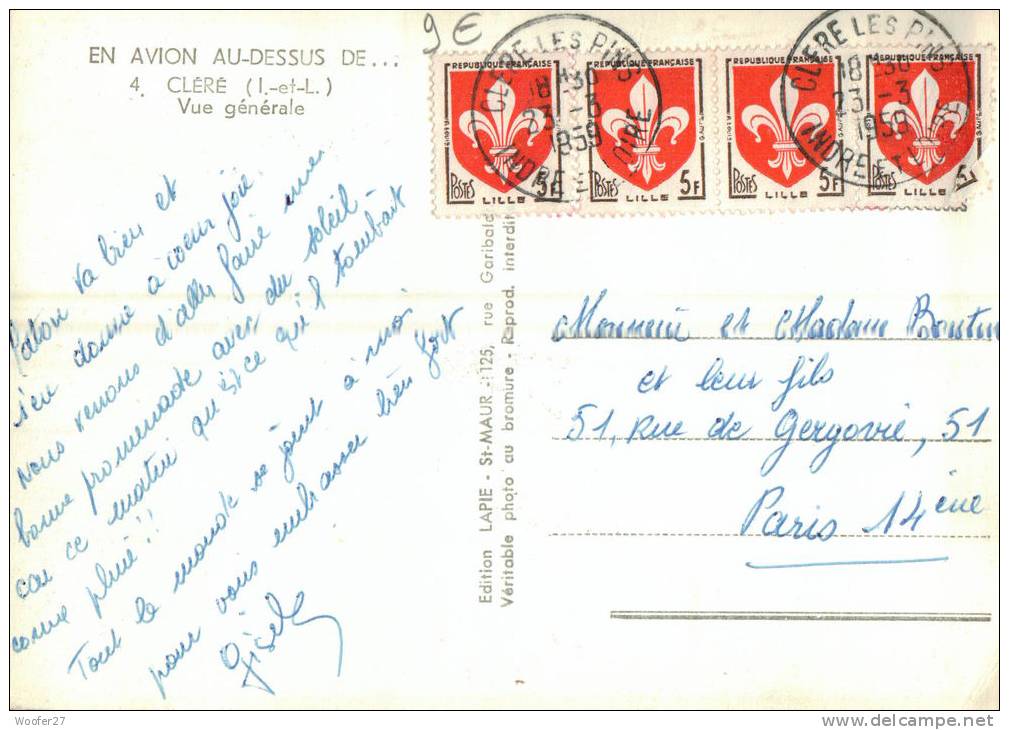 9 €
EN AVION AU-DESSUS DE...
4. CLÉRÉ (I.-et-L.)
Vue générale
REPUBLIQUE FRANÇAISE REPUBLIQUE FRANÇAISE REPUBLIQUE FRANÇAISE REPUBLIQUE FRANÇAISE
POSTES 5F POSTES 5F POSTES 5F POSTES 5F
LILLE LILLE LILLE LILLE
CLERE LES PINS
18H30
23 -3
1959
INDRE ET LOIRE
CLERE LES PINS
18H30
23 -3
1959
INDRE ET LOIRE
va bien et
s'en donne à coeur joie.
Nous venons d'aller faire une
bonne promenade avec du soleil
car ce matin qu'est ce qu'il tombait
comme pluie!!
Tout le monde se joint à moi
pour vous embrasser bien fort
Gisèle
Edition LAPIE - St-MAUR - 125, rue Garibaldi
Véritable photo au bromure - Reprod. interdite
Monsieur et Madame Boutin
et leur fils
51, Rue de Gergovie, 51
Paris 14ème
Woofer27
www.delcampe.net